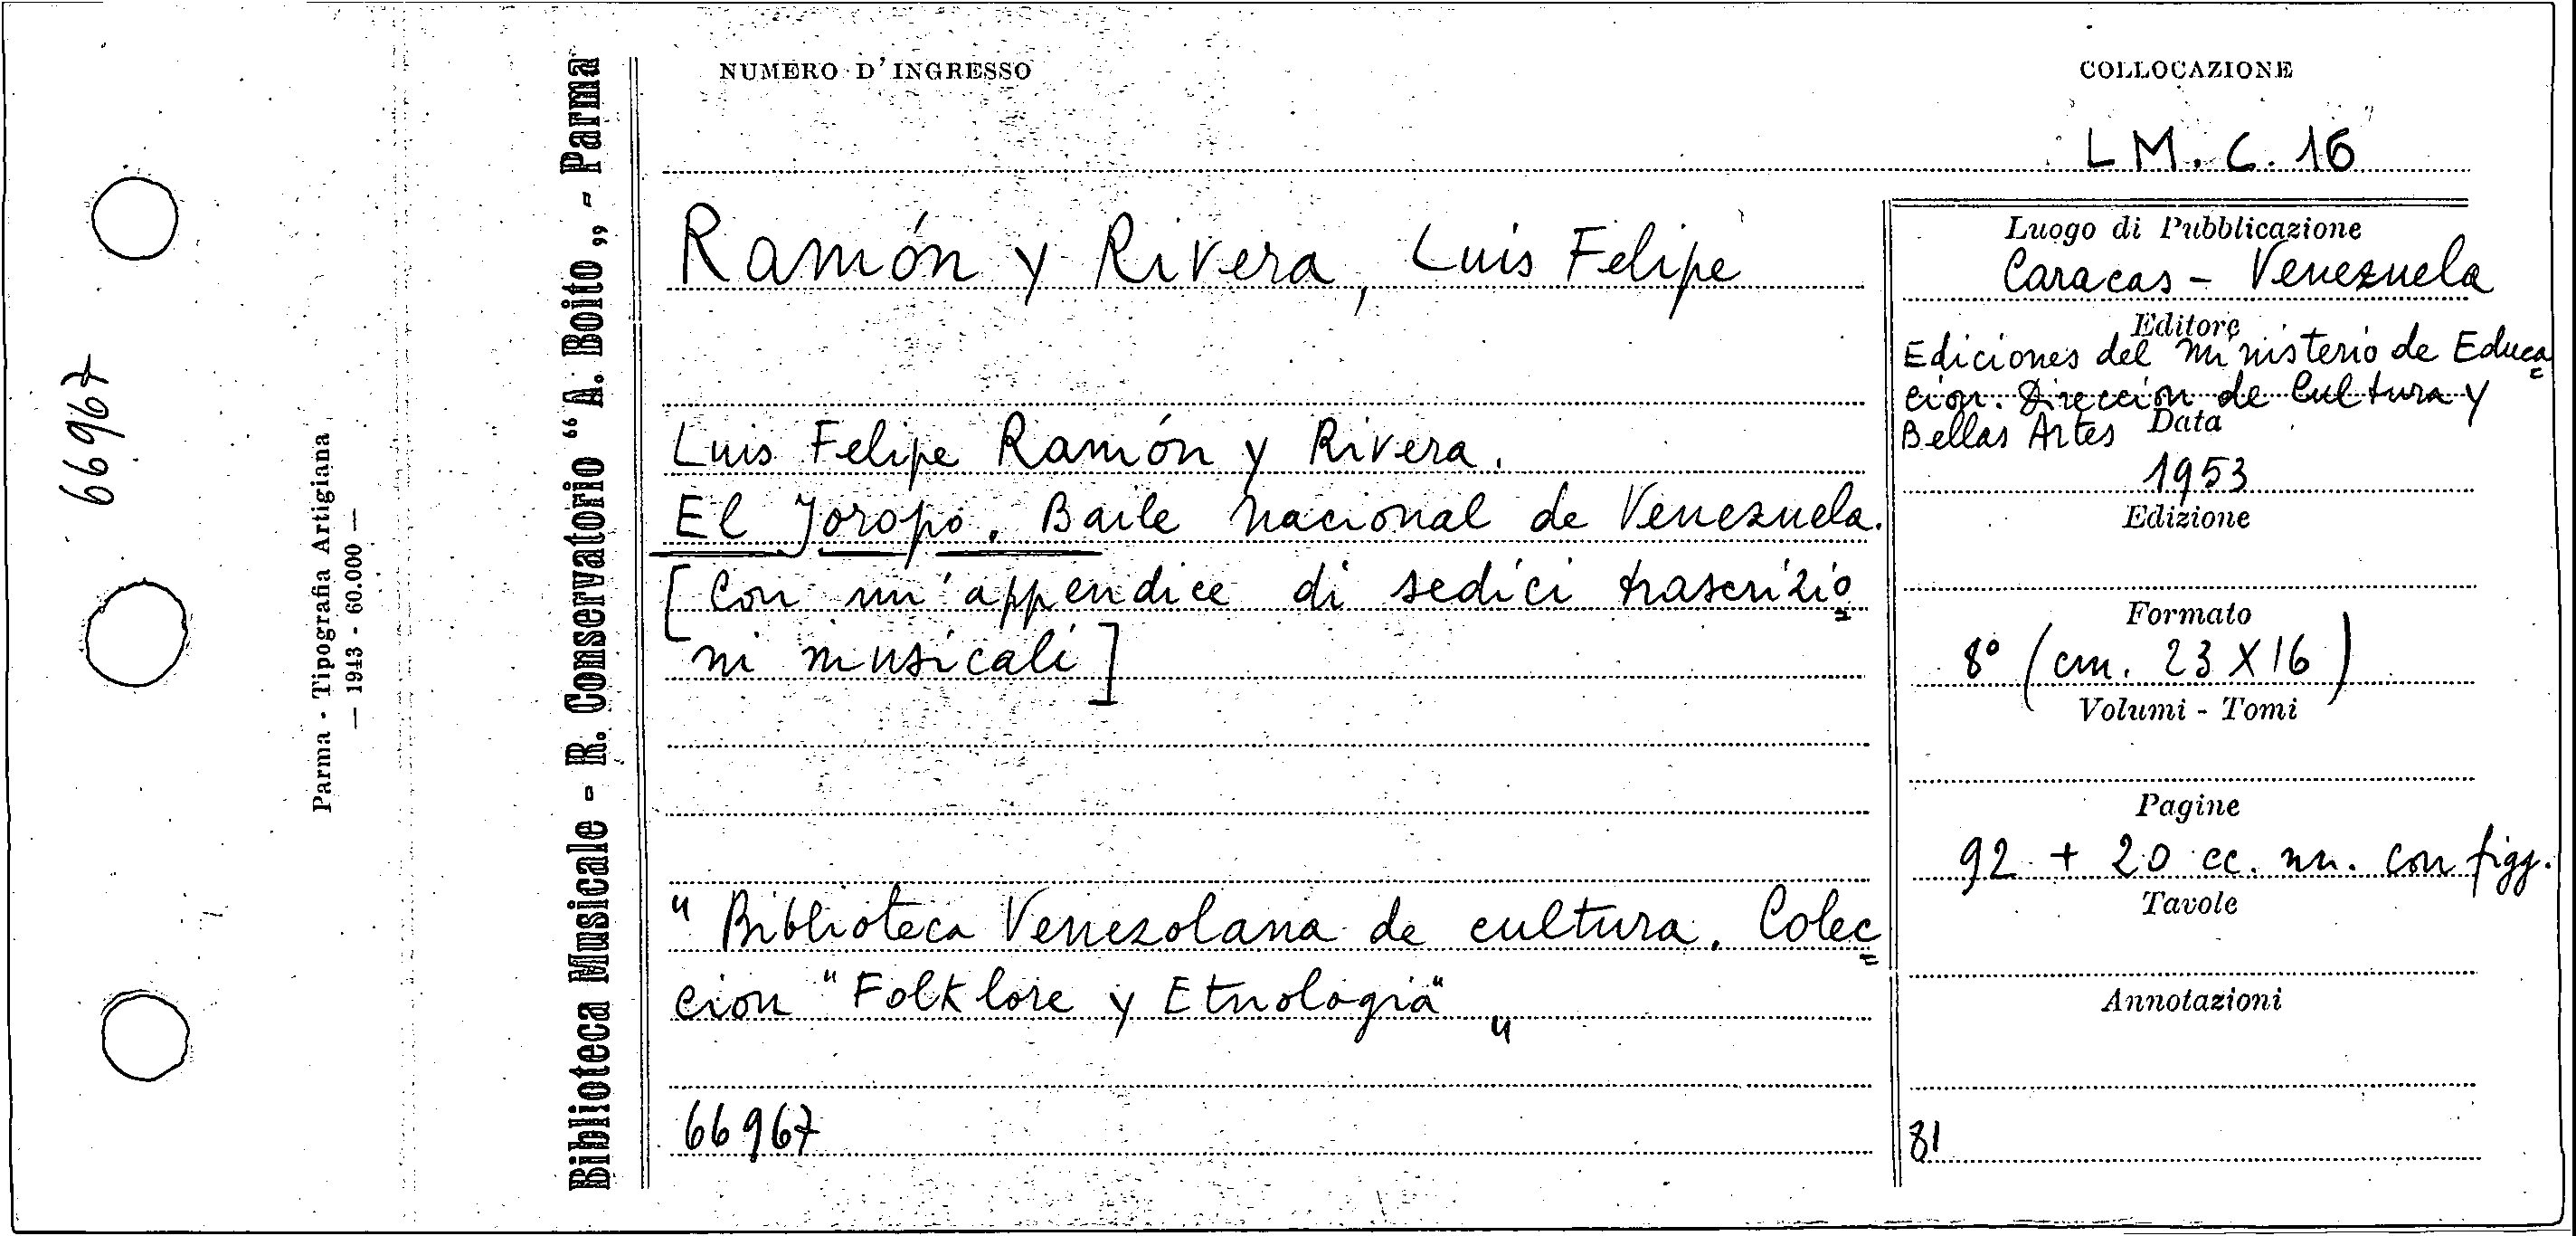 66967
Parma - Tipografia Artigiana
— 1943 - 60.000 —
Biblioteca Musicale - R. Conservatorio “ A. Boito „ - Parma
NUMERO D'INGRESSO
COLLOCAZIONE
LM. C. 16
Ramón y Rivera, Luis Felipe
Luis Felipe Ramón y Rivera.
El Joropo. Baile nacional de Venezuela.
[Con un'appendice di sedici trascrizio=
ni musicali]
"Biblioteca Venezolana de cultura. Colec=
cion "Folklore y Etnologia" "
66967
Luogo di Pubblicazione
Caracas - Venezuela
Editore
Ediciones del Ministerio de Educa=
cion. Dirección de Cultura y
Bellas Artes
Data
1953
Edizione
Formato
8° (cm. 23 X 16)
Volumi - Tomi
Pagine
92 + 20 cc. nn. con figg.
Tavole
Annotazioni
81